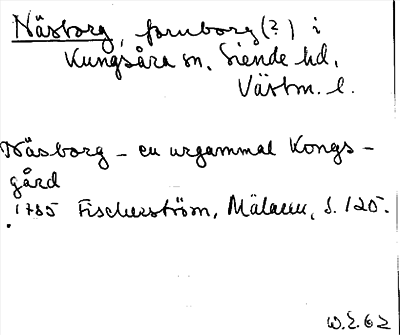 Näsborg, fornborg (?) i
Kungsåra sn, Siende hd,
Västm. l.
Näsborg – en urgammal Kongs-
gård
1785 Fischerström, Mälaren, s. 120.
W.E. 62